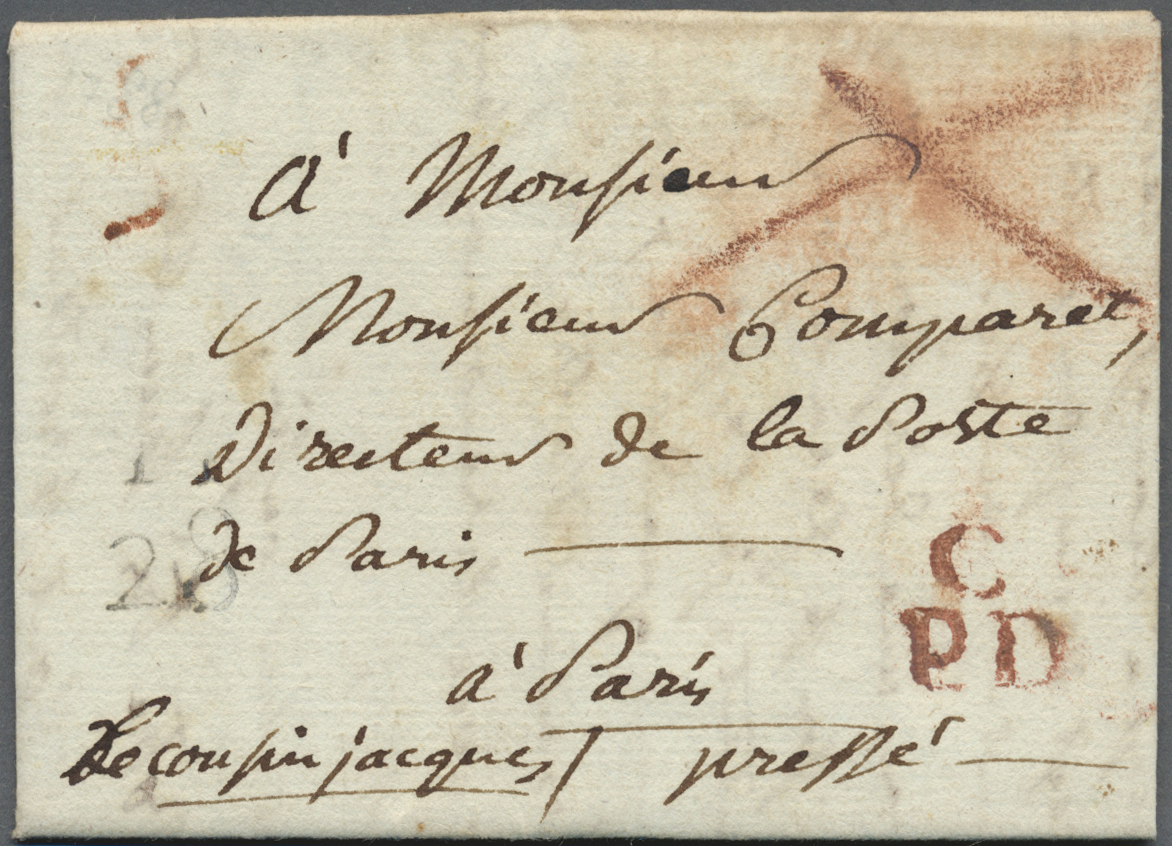 à Monsieur
Monsieur Comparet,
Directeur de la Poste
de Paris
à Paris
Le cousin jacques pressé
C
P.D
28